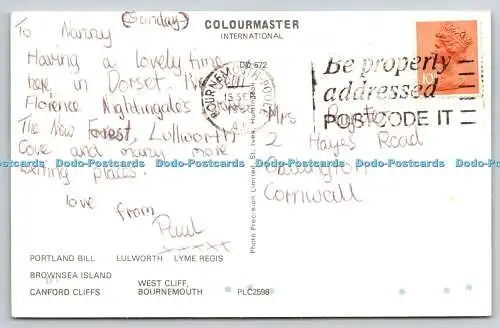 To Nanny (Sunday)
Having a lovely time
here in Dorset,
Florence Nightingale's
The New Forest, Lulworth
Cove and many more
exiting places.
love from
Paul
xxxxx
COLOURMASTER
INTERNATIONAL
DO 672
BOURNEMOUTH
15 SEP
Be properly
addressed
POSTCODE IT
10
Mrs
2 Hayes Road
Cornwall
Photo Precision Limited, St. Ives, Huntingdon
Dodo-Postcards Dodo-Postcards Dodo-Postcards Dodo-Postcards Dodo-Postcards Dodo-Postcards
PORTLAND BILL LULWORTH LYME REGIS
BROWNSEA ISLAND
CANFORD CLIFFS WEST CLIFF,
BOURNEMOUTH PLC2598